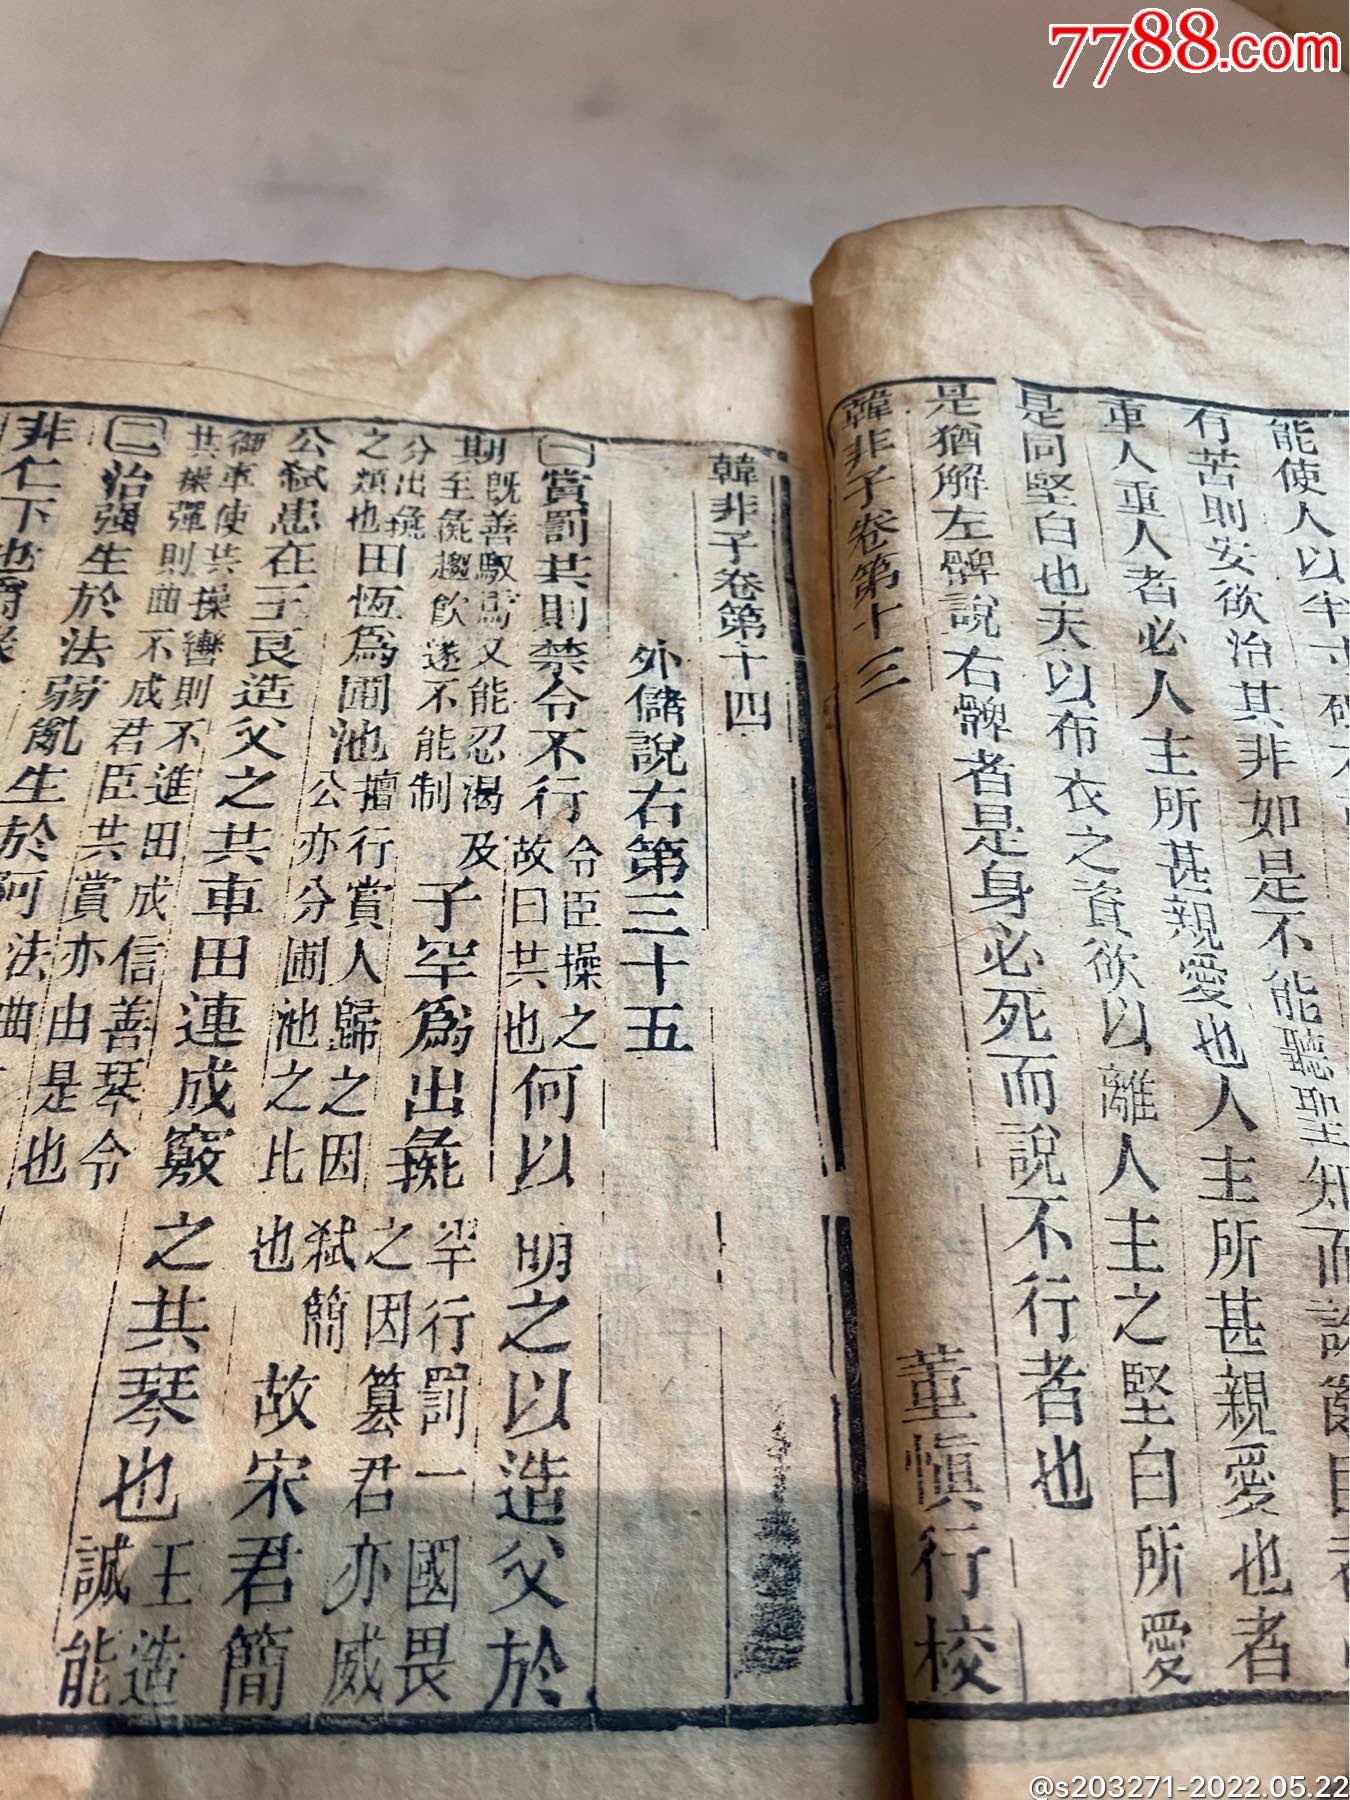 能使人以半寸砥
有苦則安欲治其非如是不能聽聖知而
重人重人者必人主所甚親愛也人主所甚親愛也者
是同堅白也夫以布衣之資欲以離人主之堅白所愛
是猶解左髀說右髀者是身必死而說不行者也
韓非子卷第十三 董慎行校
韓非子卷第十四
外儲說右第三十五
一賞罰共則禁令不行令臣操之故曰共也何以明之以造父於
期既善馭馬又能忍渴及至彘趨飲遂不能制子罕爲出彘罕行罰一國畏之因篡君亦威
分出彘之類也田恆爲圃池擅行賞人歸之因弑簡公亦分圃池之比也故宋君簡
公弑患在王良造父之共車田連成竅之共琴也王造誠能
御車使共操轡則不進田成信善琴令共操彈則曲不成君臣共賞亦由是也
二治强生於法弱亂生於阿法曲
非仁下也爵祿
7788.com
@s203271-2022.05.22